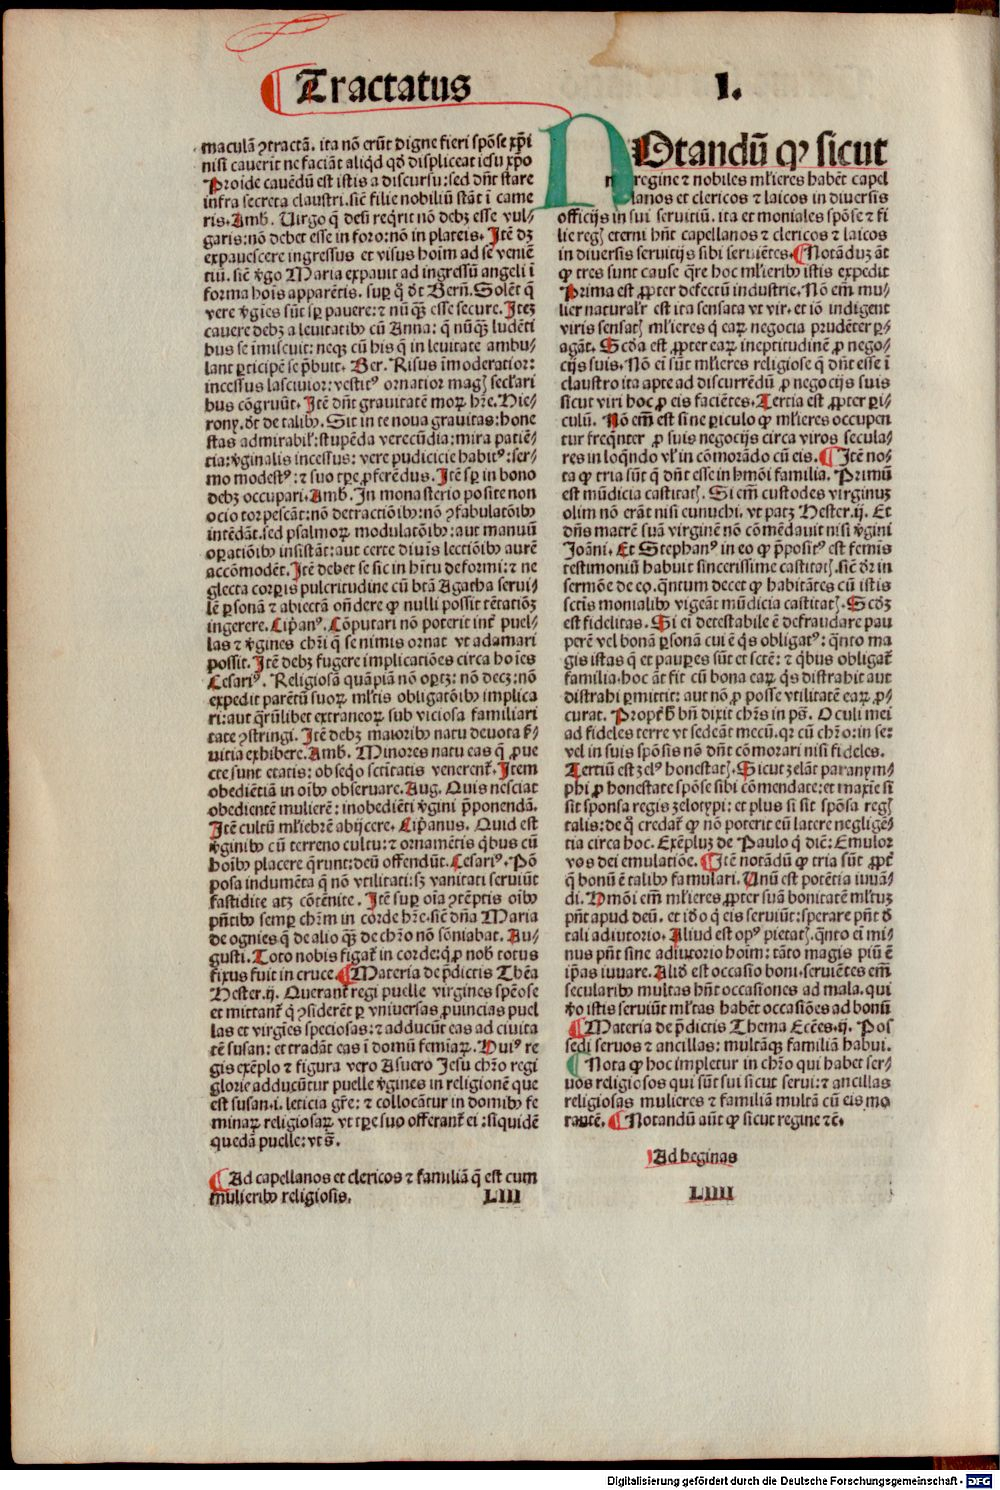 Tractatus
I.
maculã ꝯtractã. ita nõ erũt digne fieri spõse xp̃i
nisi cauerit ne faciãt aliq̃d qđ displiceat iesu xp̃o
Proide cauẽdũ est istis a discursu: sed dñt stare
infra secreta claustri. siẽ filie nobiliũ stãt ĩ came
ris. Amb. Virgo q̃ deũ req̃rit nõ debꝫ esse vul⸗
garis: nõ debet esse in foro: nõ in plateis. Itẽ dꝫ
expauescere ingressus et visus hoim ad se veniẽ
tiũ. siẽ v̾go Maria expauit ad ingressũ angeli ĩ
forma hoĩs apparẽtis. suꝑ q̊ ðt Berñ. Solẽt q̃
vere v̾gies sũt sꝑ pauere: ⁊ nũq̃ꝫ esse secure. Iteꝫ
cauere debꝫ a leuitatibꝰ cũ Anna: q̃ nũq̃ꝫ ludẽti
bus se ĩmiscuit: neqꝫ cũ his q̃ in leuitate ambu⸗
lant ꝑticipẽ se p̃buit. Ber. Risus ĩmoderatior:
incessus lasciuior: vestitꝰ ornatior magꝭ seclari
bus cõgruũt. Itẽ dñt grauitatẽ moꝝ hr̃e. Hie⸗
rony. ðt de talibꝰ. Sit in te noua grauitas: hone
stas admirabił: stupẽda verecũdia: mira patiẽ⸗
tia: v̾ginalis incessus: vere pudicicie habitꝰ: ser⸗
mo modestꝰ: ⁊ suo tꝑe ꝓferẽdus. Itẽ sꝑ in bono
debꝫ occupari. Amb. In monasterio posite non
ocio torpescãt: nõ detractiõibꝰ: nõ ꝯfabulatõibꝰ
intẽdãt. sed psalmoꝝ modulatõibꝰ: aut manuũ
oꝑatiõibꝰ insistãt: aut certe diuĩs lectiõibꝰ aurẽ
accõmodẽt. Itẽ debet se sic in hr̃tu deformi: ⁊ ne
glecta corꝑis pulcritudine cũ btã Agatha serui⸗
lẽ ꝑsonã ⁊ abiectã oñdere ꝙ nulli possit tẽtatiõꝫ
ingerere. Cip̃anꝰ. Cõputari nõ poterit int̃ puel⸗
las ⁊ v̾gines chr̃i q̃ se nimis ornat vt adamari
possit. Itẽ debꝫ fugere implicatiões circa hoĩes
Cesariꝰ. Religiosã quãpiã nõ oꝑtꝫ: nõ decꝫ: nõ
expedit parẽtũ suoꝝ mľtis obligatõibꝰ implica
ri: aut q̃rũlibet extraneoꝝ sub viciosa familiari
tate ꝯstringi. Itẽ debꝫ maioribꝰ natu deuota ẜ⸗
uitia exhibere. Amb. Minores natu eas q̃ ꝓue
cte sunt etatis: ob seq̃o sctitatis venerent̃. Item
obediẽtiã in oĩbꝰ obseruare. Aug. Quis nesciat
obedientẽ mulierẽ: inobediẽti v̾gini p̃ponendã.
Itẽ cultũ mľiebrẽ abijcere. Cip̃anus. Quid est
v̾ginibꝰ cũ terreno cultu: ⁊ ornamẽtis q̃bus cũ
hoĩbꝰ placere q̃runt: deũ offendũt. Cesariꝰ. Põ
posa indumẽta q̃ nõ vtilitati: sꝫ vanitati seruiũt
fastidite atꝫ cõtẽnite. Itẽ suꝑ oĩa ꝯtẽptis oĩbꝰ
pñtibꝰ semꝑ chr̃m in corde hr̃e. siẽ dña Maria
de ognies q̃ de alio q̃ꝫ de chr̃o nõ sõniabat. Au⸗
gusti. Toto nobis figat̃ in corde: q̃ ꝓ nob̾ totus
fixus fuit in cruce. Materia de p̃dictis Thẽa
Hester. ij. Querant̃ regi puelle virgines spẽose
et mittant̃ q̃ ꝯsiderẽt ꝑ vniuersas ꝓuincias puel
las et virgies speciosas: ⁊ adducũt eas ad ciuita
tẽ susan: et tradãt eas ĩ domũ femĩaꝝ. Huiꝰ re
gis exẽplo ⁊ figura vero Asuero Iesu chr̃o regi
glorie adducũtur puelle v̾gines in religionẽ que
est susan .i. leticia gr̃e: ⁊ collocãtur in domibꝰ fe
minaꝝ religiosaꝝ vt tꝑe suo offerant̃ ei: siquidẽ
quedã puelle: vt s̃.
Ad capellanos et clericos ⁊ familiã q̃ est cum
mulieribꝰ religiosis. LIII
NOtandũ ꝙ sicut
regine ⁊ nobiles mľieres habẽt capel
lanos et clericos ⁊ laicos in diuersis
officijs in sui seruitiũ. ita et moniales spõse ⁊ fi
lie regꝭ eterni hñt capellanos ⁊ clericos ⁊ laicos
in diuersis seruitijs sibi seruiẽtes. Notãduꝫ ãt
ꝙ tres sunt cause q̃re hoc mľieribꝰ istis expedit
Prima est ꝓpter defectũ industrie. Nõ em̃ mu⸗
lier naturalr̃ est ita sensata vt vir. et iõ indigent
viris sensatꝭ mľieres q̃ eaꝝ negocia prudẽter ꝑ⸗
agãt. Scđa est ꝓpter eaꝝ ineptitudinẽ ꝓ nego⸗
cijs suis. Nõ ei̾ sũt mľieres religiose q̃ dñt esse ĩ
claustro ita apte ad discurrẽdũ ꝓ negocijs suis
sicut viri hoc ꝓ eis faciẽtes. Tertia est ꝓpter ꝑi⸗
culũ. Nõ em̃ est sine ꝑiculo ꝙ mľieres occupen
tur freq̃nter ꝓ suis negocijs circa viros secula⸗
res in loq̃ndo vľ in cõmorãdo cũ eis. Itẽ no⸗
ta ꝙ tria sũt q̃ dñt esse in hmõi familia. Primũ
est mũdicia castitatꝭ. Si em̃ custodes virginuꝫ
olim nõ erãt nisi eunuchi. vt patꝫ Hester. ij. Et
dñs matrẽ suã virginẽ nõ cõmẽdauit nisi v̾gini
Ioãni. Et Stephanꝰ in eo ꝙ p̃positꝰ est femis
testimoniũ habuit sincerissime castitatꝭ. siẽ ðr in
sermõe de eo. q̃ntum decet ꝙ habitãtes cũ istis
sctis monialibꝰ vigeãt mũdicia castitatꝭ. Scđꝫ
est fidelitas. Si ei̾ detestabile ẽ defraudare pau
perẽ vel bonã ꝑsonã cui ẽ q̃s obligatꝰ: q̃nto ma
gis istas q̃ et pauꝑes sũt et sctẽ: ⁊ q̃bus obligat̃
familia. hoc ãt fit cũ bona eaꝝ q̃s distrahit aut
distrahi ꝑmittit: aut nõ ꝓ posse vtilitatẽ eaꝝ ꝓ⸗
curat. Propt̃ ħ bñ dixit chr̃s in pš. Oculi mei
ad fideles terre vt sedeãt mecũ. qꝛ cũ chr̃o: in ser
vel in suis spõsis nõ dñt cõmorari nisi fideles.
Tertiũ est ꝫelꝰ honestatꝭ. Sicut ꝫelãt paranym⸗
phi ꝓ honestate spõse sibi cõmendate: et maxĩe si
sit sponsa regis ꝫelotypi: et plus si sit spõsa regꝭ
talis: de q̃ credat̃ ꝙ nõ poterit eũ latere neglige⸗
tia circa hoc. Exẽpluꝫ de Paulo q̃ diẽ: Emulor
vos dei emulatiõe. Itẽ notãdũ ꝙ tria sũt ꝓpt̃
q̃ bonũ ẽ talibꝰ famulari. Unũ est potẽtia iuuã⸗
di. Hmõi em̃ mľieres ꝓpter suã bonitatẽ mľtuꝫ
pñt apud deũ. et iðo q̃ eis seruiũt: sperare pñt ð
tali adiutorio. Aliud est opꝰ pietatꝭ. q̃nto ei̾ mi⸗
nus pñt sine adiutorio hoim: tãto magis piũ ẽ
ip̃as iuuare. Aliđ est occasio boni. seruiẽtes em̃
secularibꝰ multas hñt occasiones ad mala. qui
v̾o istis seruiũt mľtas habẽt occasiões ad bonũ
Materia de p̃dictis Thema Ecẽes. ij. Pos
sedi seruos ⁊ ancillas: multãqꝫ familiã habui.
Nota ꝙ hoc impletur in chr̃o qui habet ser⸗
uos religiosos qui sũt sui sicut serui: ⁊ ancillas
religiosas mulieres ⁊ familiã multã cũ eis mo
rantẽ. Notandũ aũt ꝙ sicut regine ⁊c̃.
Ad beginas
LIIII
Digitalisierung gefördert durch die Deutsche Forschungsgemeinschaft - DFG